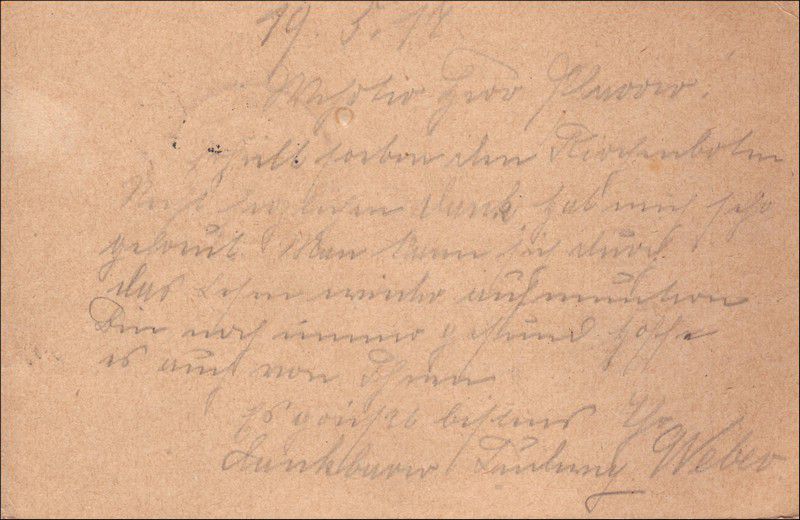 19. 5. 17
Wehrter Herr Pfarrer!
Erhielt soeben den Kirchenboten
Recht herzlichen Dank hat mich sehr
gefreut. Man kann sich durch
das Lesen wieder aufmuntern
Bin noch immer gesund hoffe
es auch von Ihnen
Es grüßt bestens Ihr
Dankbarer Ludwig Weber